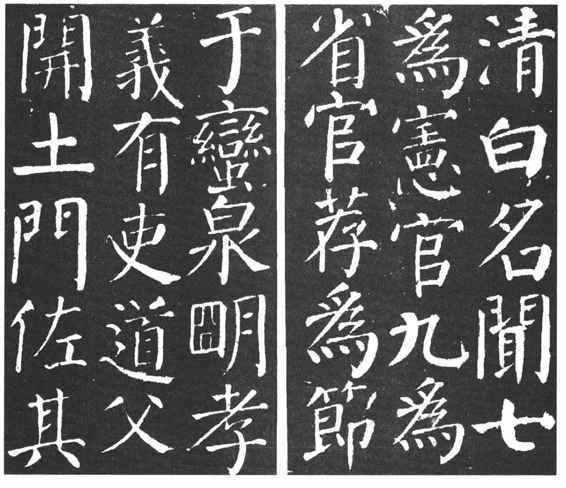 清白名聞七
爲憲官九爲
省官荐爲節
于蠻泉朙孝
義有吏道父
開土門佐其